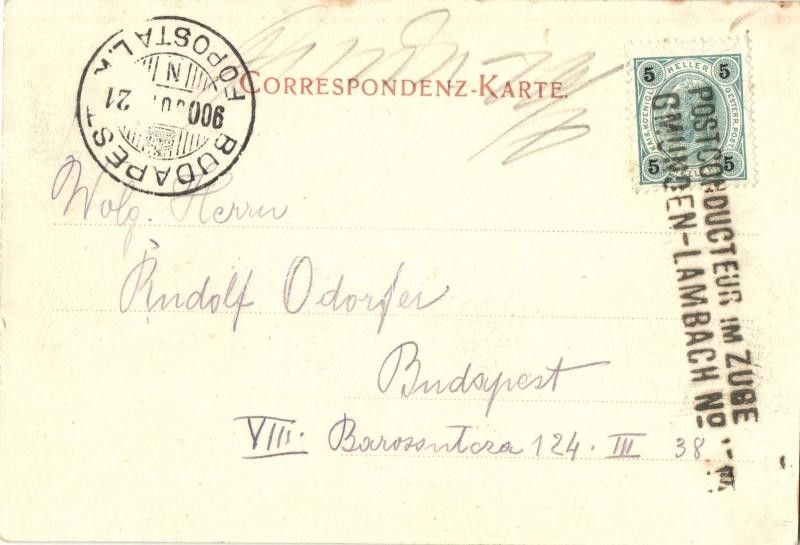 CORRESPONDENZ-KARTE.
BUDAPEST
FŐPOSTA L.K.
900 21
N
5 HELLER 5
KAIS. KOENIGL. OESTERR. POST
5 HELLER 5
POSTCONDUCTEUR IM ZUGE
GMUNDEN-LAMBACH No
Wolg. Herrn
Rudolf Odorfer
Budapest
VIII. Barossutcza 124. III 38